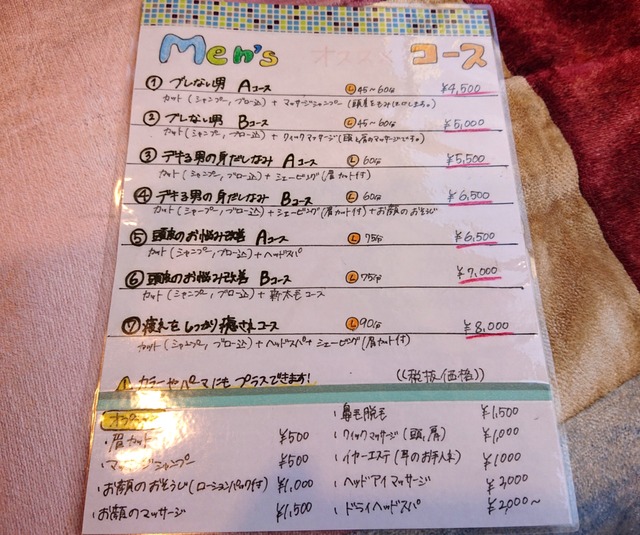 Men's オススメ コース
① ブレない男 Aコース Ⓛ45〜60分 ¥4,500
カット(シャンプー,ブロー込)+マッサージシャンプー
② ブレない男 Bコース Ⓛ45〜60分 ¥5,000
カット(シャンプー,ブロー込)+クイックマッサージ(頭と肩のマッサージです。)
③ デキる男の身だしなみ Aコース Ⓛ60分 ¥5,500
カット(シャンプー,ブロー込)+シェービング(眉カット付)
④ デキる男の身だしなみ Bコース Ⓛ60分 ¥6,500
カット(シャンプー,ブロー込)+シェービング(眉カット付)+お顔のおそうじ
⑤ 頭皮のお悩み改善 Aコース Ⓛ75分 ¥6,500
カット(シャンプー,ブロー込)+ヘッドスパ
⑥ 頭皮のお悩み改善 Bコース Ⓛ75分 ¥7,000
カット(シャンプー,ブロー込)+新太毛コース
⑦ 疲れをしっかり癒されコース Ⓛ90分 ¥8,000
カット(シャンプー,ブロー込)+ヘッドスパ+シェービング(眉カット付)
カラーやパーマにもプラスできます! ((税抜価格))
オプション
・眉カット ¥500
・マッサージシャンプー ¥500
・お顔のおそうじ(ローションパック付) ¥1,000
・お顔のマッサージ ¥1,500
・鼻毛脱毛 ¥1,500
・クイックマッサージ(頭,肩) ¥1,000
・イヤーエステ(耳のお手入れ) ¥1,000
・ヘッドアイマッサージ ¥2,000
・ドライヘッドスパ ¥2,000〜